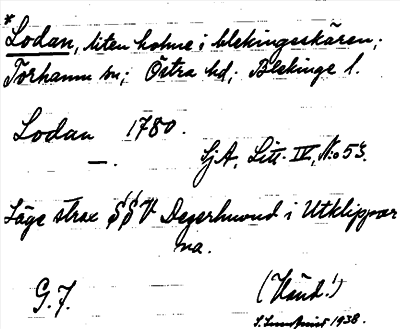 *Lodan, liten holme i blekingsskären;
Torhamn sn; Östra hd; Blekinge l.
Lodan 1780.
—. SjA, Litt. IV, N:o 53.
Läge strax SSV Degerhuvud i Utklippor
na.
G.7. (Vänd!)
S. Lundquist 1938.